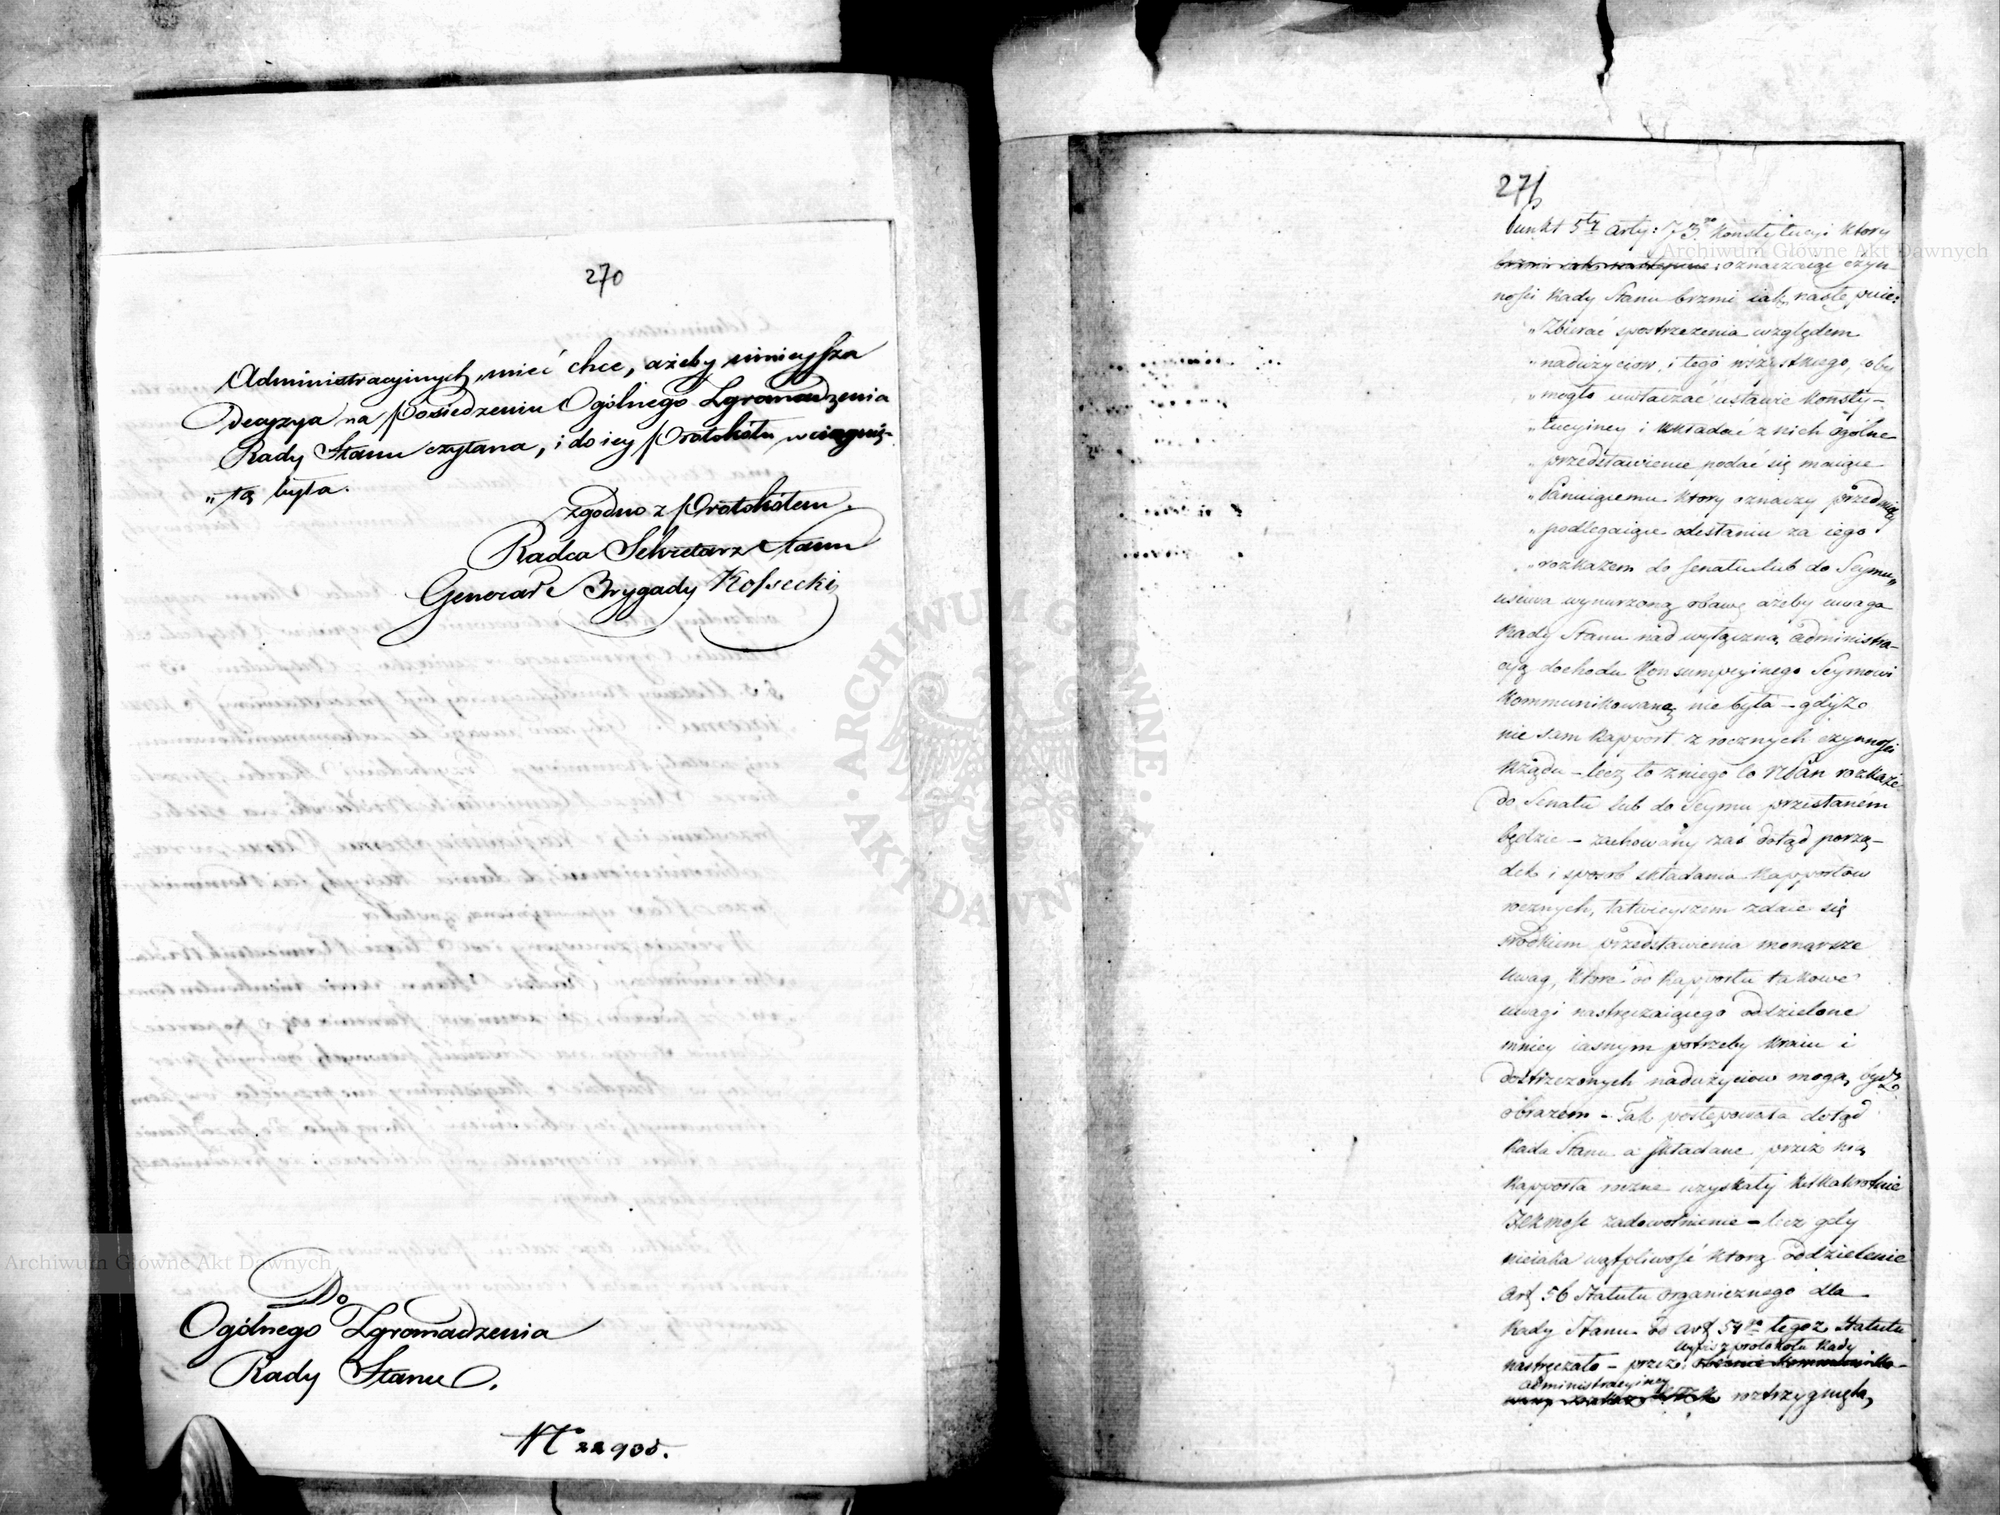 270
Administracyjnych, mieć chce, ażeby ninieysza
Decyzya na Posiedzeniu Ogólnego Zgromadzenia
Rady Stanu czytana, i do iey Protokółu wciągnię-
„tą była.
zgodno z Protokółem.
Radca Sekretarz Stanu
Generał Brygady Kossecki
Do
Ogólnego Zgromadzenia
Rady Stanu.
271
Punkt 5ty Arty: 73go Konstytucyi który
oznaczaiąc czyn-
ności Rady Stanu brzmi iak następuie:
„Zbierać spostrzeżenia względem
„nadużyciow, i tego wszystkiego, coby
„mogło uwłaczać ustawie Konsty-
„tucyiney i układać z nich ogólne
„przedstawienie, podać się maiące
„Panuiącemu który oznaczy przedmioty
„podlegaiące odesłaniu za iego
„rozkazem do Senatu lub do Seymu„
usuwa wynurzoną obawę ażeby uwaga
Rady Stanu nad wyłączną administra-
cyą dochodu Konsumpcyinego Seymowi
Kommunikowaną nie była – gdyż
nie sam Rapport z rocznych czynności
Rządu – lecz to z niego co NPan rozkaże
do Senatu lub do Seymu przesłaném
będzie – zachowany zaś dotąd porzą-
dek i sposób składania Rapportów
rocznych, łatwieyszem zdaie się
środkiem przedstawienia monarsze
uwag, które od Rapportu takowe
uwagi nastręczaiącego oddzielone
mniey iasnym potrzeby Kraiu i
dostrzeżonych nadużyciow mogą bydź
obrazem – Tak postępowała dotąd
Rada Stanu a składane przez nią
Rapporta roczne uzyskały kilkakrotnie
zadowolnienie – lecz gdy
nieiaka wątpliwość którą oddzielenie
Art 56 Statutu organicznego dla
Rady Stanu od art 54go tegoż Statutu
wypis z protokołu Rady
nastręczało – przez
administracyiney
roztrzygnięta,
Archiwum Główne Akt Dawnych
Archiwum Główne Akt Dawnych
ARCHIWUM GŁÓWNE · AKT DAWNYCH ·